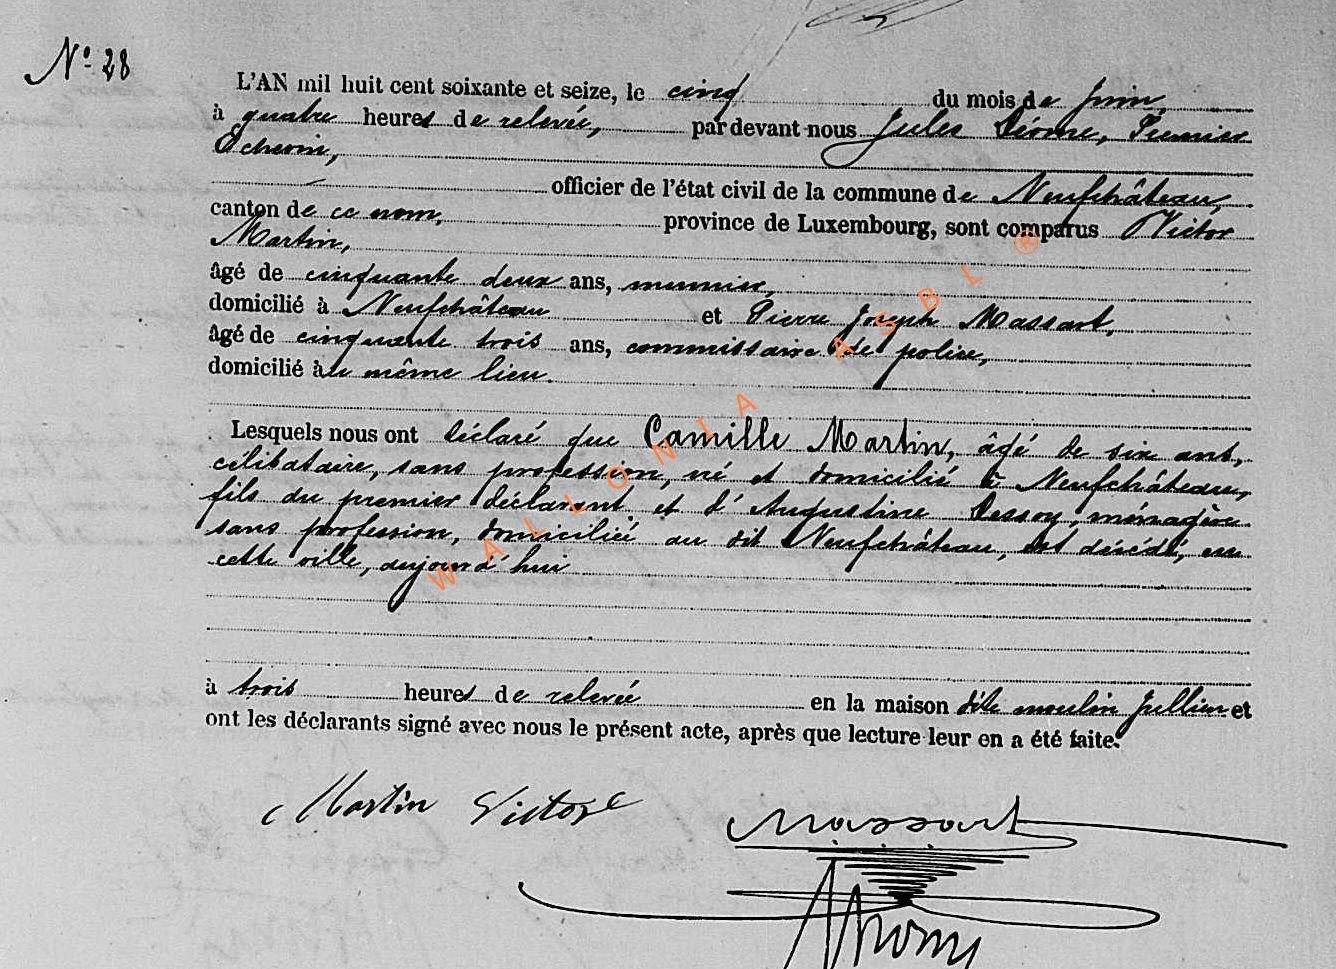 N° 28
L'AN mil huit cent soixante et seize, le cinq du mois de Juin,
à quatre heures de relevée, par devant nous Jules Dérome, Premier
Echevin,
officier de l'état civil de la commune de Neufchâteau,
canton de ce nom, province de Luxembourg, sont comparus Victor
Martin,
âgé de cinquante deux ans, meunier,
domicilié à Neufchâteau et Pierre Joseph Massart,
âgé de cinquante trois ans, commissaire de police,
domicilié au même lieu.
Lesquels nous ont déclaré que Camille Martin, âgé de six ans,
célibataire, sans profession, né et domicilié à Neufchâteau,
fils du premier déclarant et d'Augustine Dessoy, ménagère
sans profession, domiciliée au dit Neufchâteau, est décédé, en
cette ville, aujourd'hui
à trois heures de relevée en la maison dite moulin Jullien et
ont les déclarants signé avec nous le présent acte, après que lecture leur en a été faite.
Martin Victor
Massart
WALLONIA ASBL ®